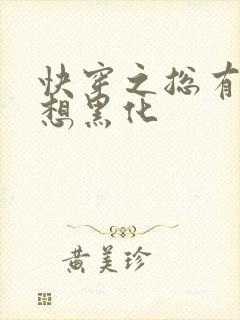 快穿之总有
想黑化
黄美珍